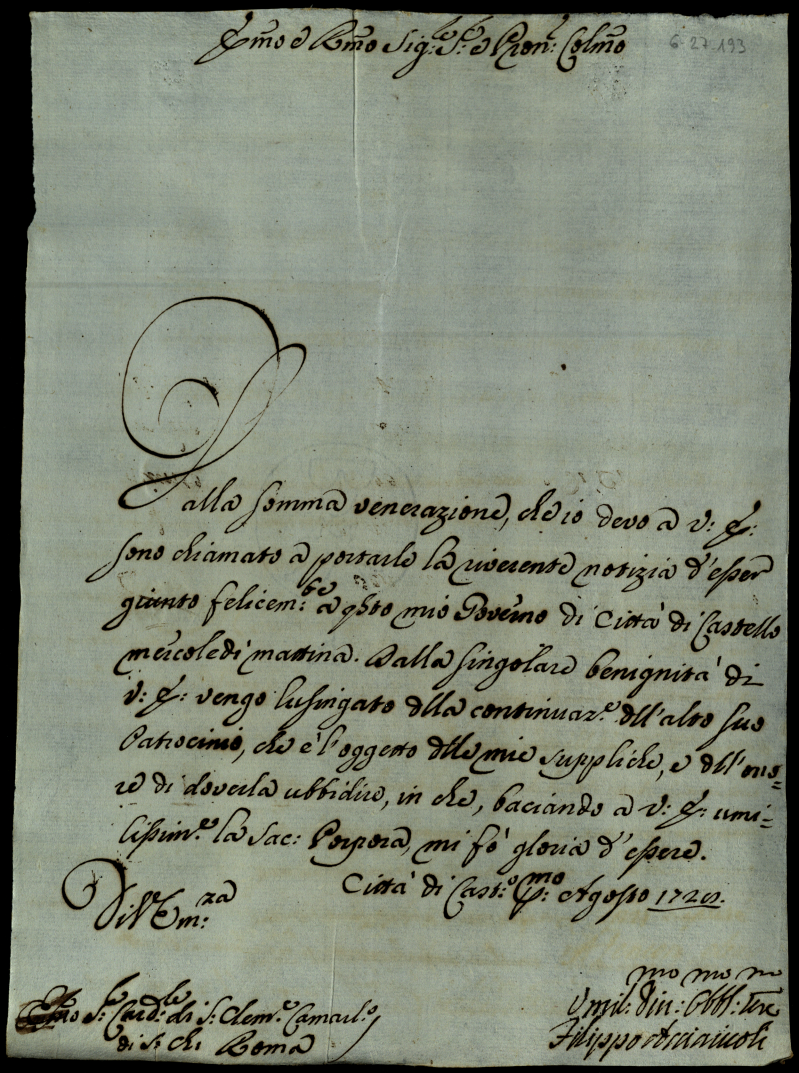 Emo e Rmo Sig.re S.re e Pron: Colmo
6-27-193
Dalla somma venerazione, che io devo a V: E:
sono chiamato a portarle la riverente notizia d'esser
giunto felicem:te a qsto mio Governo di Città di Castello
mercoledì mattina. Dalla singolare benignità di
V: E: vengo lusingato dlla continuaz.e dll'alto suo
Patrocinio, che è l'oggetto dlle mie suppliche, e dll'ono-
re di doverla ubbidire, in che, baciando a V: E: umi-
lissim.e la Sac: Porpora, mi fò gloria d'essere.
Di V. Em:za
Città di Cast.o p:mo Agosto
Emo S.re Card:le di S: Clem.e Camarl.o
di S: Ch: Roma
Umil:mo Div:mo Obbl:mo Ser
Filippo Acciaiuoli